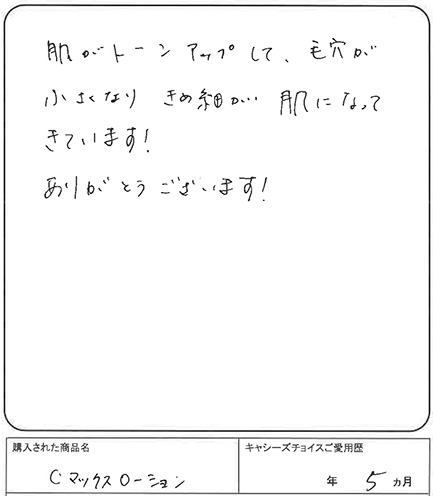 肌がトーンアップして、毛穴が
小さくなり きめ細かい 肌になって
きています!
ありがとうございます!
購入された商品名
キャシーズチョイスご愛用歴
Cマックスローション
年 5 ヵ月